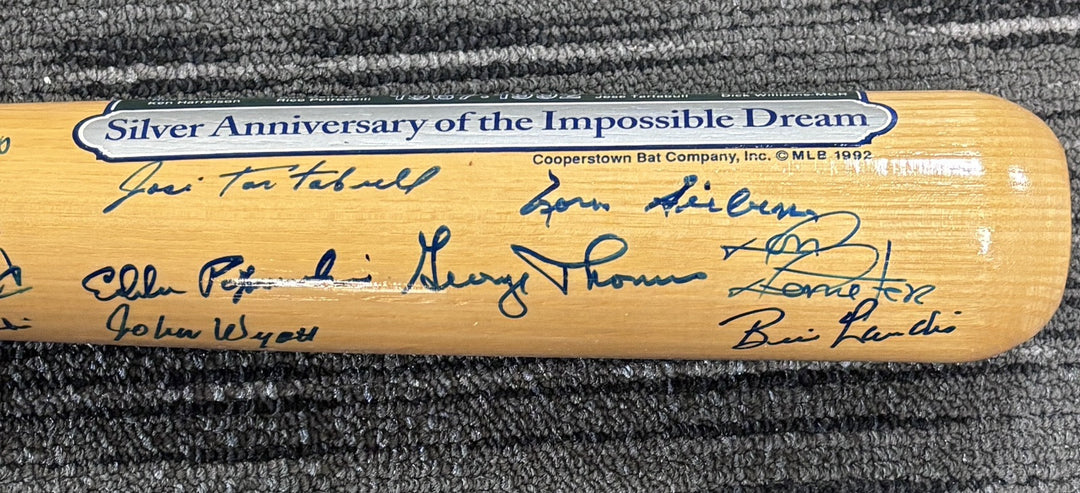 Ken Harrelson Rico Petrocelli 1967-1992 Jose Tartabull
Silver Anniversary of the Impossible Dream
Cooperstown Bat Company, Inc. © MLB 1992
Jose Tartabull
Norm Siebern
Eddie Popowski
George Thomas
Don
Demeter
John Wyatt
Bill Landis